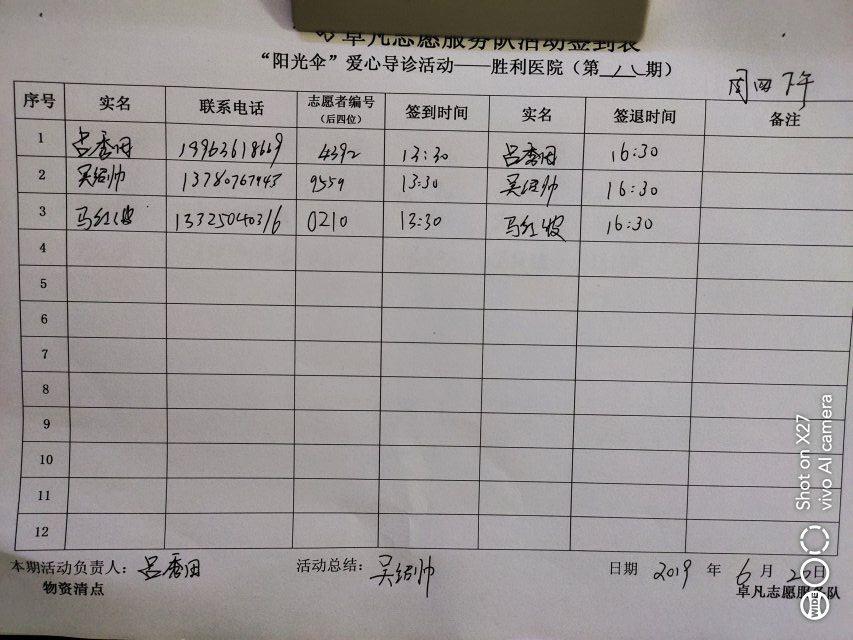 卓凡志愿服务队活动签到表
“阳光伞”爱心导诊活动——胜利医院（第 八 期）
周四下午
序号 实名 联系电话 志愿者编号（后四位） 签到时间 实名 签退时间 备注
1 吕秀田 4392 13:30 吕秀田 16:30
2 吴绍帅 13780767943 9559 13:30 吴绍帅 16:30
3 马红波 13325040316 0210 13:30 马红波 16:30
4
5
6
7
8
9
10
11
12
本期活动负责人：吕秀田 活动总结：吴绍帅 日期 2019 年 6 月 20日
物资清点 卓凡志愿服务队
Shot on X27
vivo AI camera
WIDE